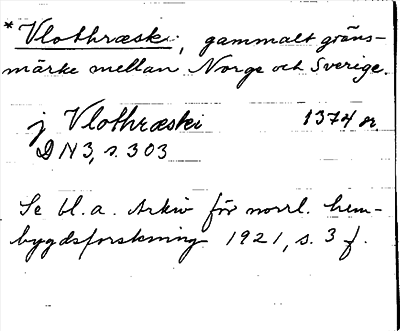 *Vlothræski, gammalt gräns-
märke mellan Norge och Sverige.
j Vlothræski 1374 n.
DN 3, s. 303
Se bl.a. Arkiv för norrl. hem-
bygdsforskning 1921, s. 3 f.